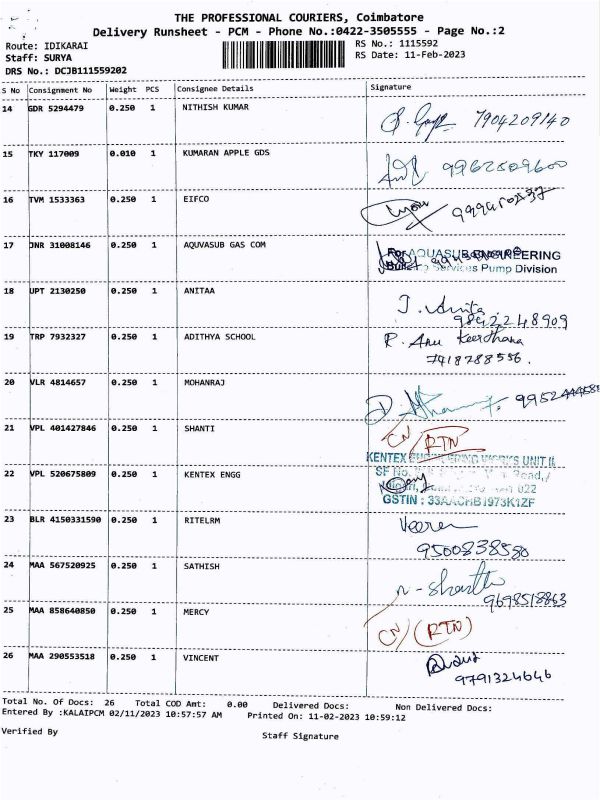 THE PROFESSIONAL COURIERS, Coimbatore
Delivery Runsheet - PCM - Phone No.:0422-3505555 - Page No.:2
Route: IDIKARAI RS No.: 1115592
Staff: SURYA RS Date: 11-Feb-2023
DRS No.: DCJB111559202
S No Consignment No Weight PCS Consignee Details Signature
14 GDR 5294479 0.250 1 NITHISH KUMAR 7904209140
15 TKY 117009 0.010 1 KUMARAN APPLE GDS
16 TVM 1533363 0.250 1 EIFCO
17 JNR 31008146 0.250 1 AQUVASUB GAS COM For AQUASUB ENGINEERING
Services Pump Division
18 UPT 2130250 0.250 1 ANITAA J. Anita
9842248909
19 TRP 7932327 0.250 1 ADITHYA SCHOOL R. Anu Keerthana
7418788556.
20 VLR 4814657 0.250 1 MOHANRAJ
21 VPL 401427846 0.250 1 SHANTI CN/(RTN)
KENTEX ENGINEERING WORKS UNIT II
SF No. Road,
22 VPL 520675809 0.250 1 KENTEX ENGG 022
GSTIN : 33AACHB1973K1ZF
23 BLR 4150331590 0.250 1 RITELRM Veeren
9500838580
24 MAA 567520925 0.250 1 SATHISH
9698518863
25 MAA 858640850 0.250 1 MERCY CN/(RTN)
26 MAA 290553518 0.250 1 VINCENT
9791324646
Total No. Of Docs: 26 Total COD Amt: 0.00 Delivered Docs: Non Delivered Docs:
Entered By :KALAIPCM 02/11/2023 10:57:57 AM Printed On: 11-02-2023 10:59:12
Verified By Staff Signature